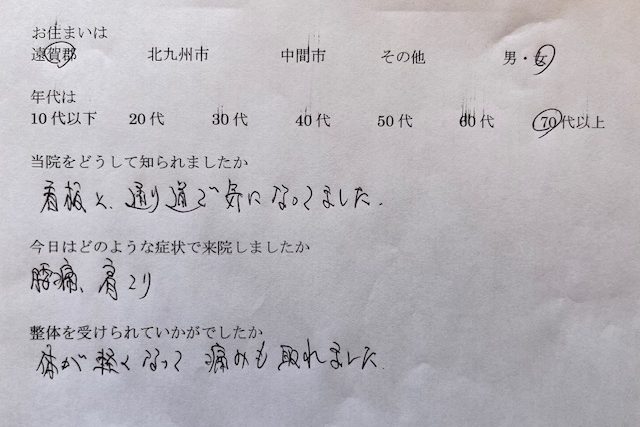 お住まいは
遠賀郡 北九州市 中間市 その他 男・女
年代は
10代以下 20代 30代 40代 50代 60代 70代以上
当院をどうして知られましたか
看板と、通り道で気になってました.
今日はどのような症状で来院しましたか
腰痛、肩こり
整体を受けられていかがでしたか
体が軽くなって 痛みも取れました.